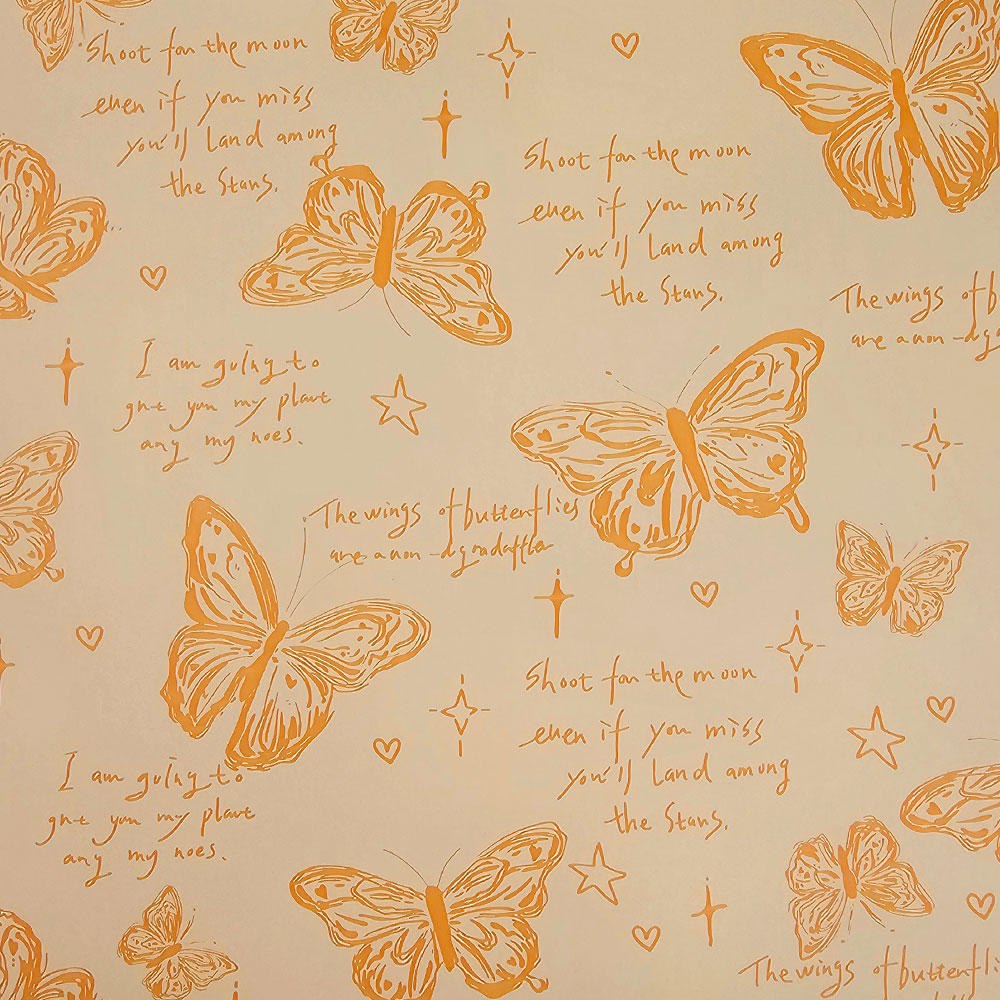 Shoot for the moon
even if you miss
you'll Land among
the Stars.
Shoot for the moon
even if you miss
you'll Land among
the Stars.
The wings of b
are a non-dg
I am going to
any my noes.
The wings of butterflies
are a non-dg
Shoot for the moon
even if you miss
you'll Land among
the Stars.
I am going to
any my noes.
The wings of butterfli